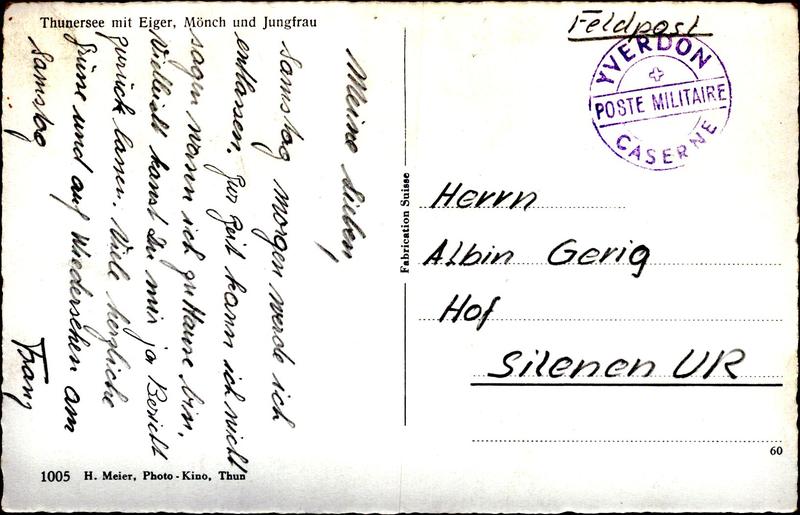 Thunersee mit Eiger, Mönch und Jungfrau
Meine Lieben,
Samstag morgen werde ich
entlassen. Zur Zeit kann ich nicht
sagen wann ich zu Hause bin.
Villeicht kannst Du mir ja Bericht
zurück lassen. Viele herzliche
Grüsse und auf Wiedersehen am
Samstag
Franz
1005 H. Meier, Photo-Kino, Thun
Fabrication Suisse
Feldpost
YVERDON
POSTE MILITAIRE
CASERNE
Herrn
Albin Gerig
Hof
Silenen UR
60